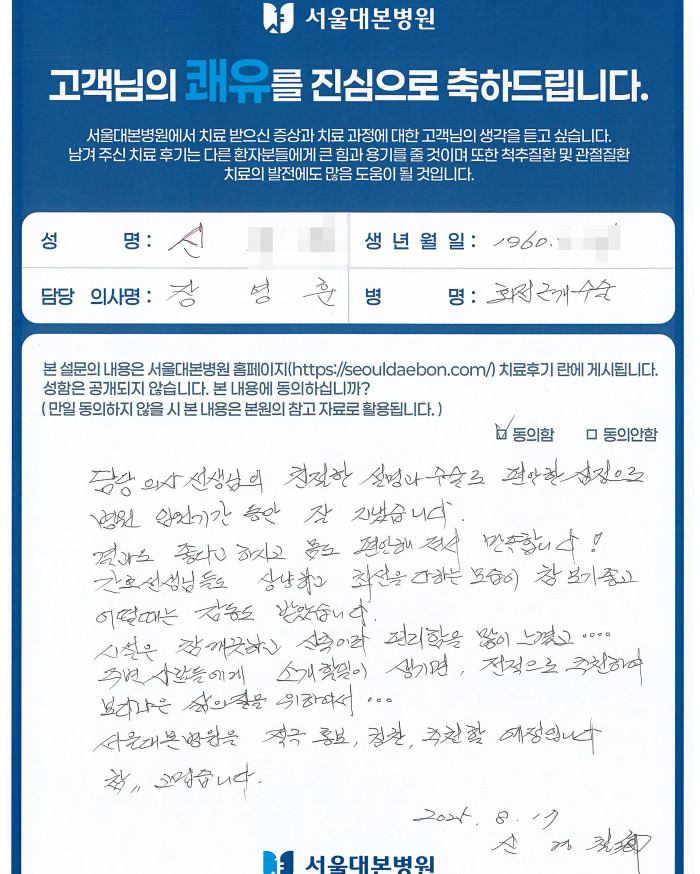 서울대본병원
고객님의 쾌유를 진심으로 축하드립니다.
서울대본병원에서 치료 받으신 증상과 치료 과정에 대한 고객님의 생각을 듣고 싶습니다.
남겨 주신 치료 후기는 다른 환자분들에게 큰 힘과 용기를 줄 것이며 또한 척추질환 및 관절질환
치료의 발전에도 많음 도움이 될 것입니다.
성 명 : 신
생 년 월 일 : 1960.
담당 의사명 : 장 영 훈
병 명 : 회전근개수술
본 설문의 내용은 서울대본병원 홈페이지(https://seouldaebon.com/) 치료후기 란에 게시됩니다.
성함은 공개되지 않습니다. 본 내용에 동의하십니까?
( 만일 동의하지 않을 시 본 내용은 본원의 참고 자료로 활용됩니다. )
☑ 동의함 □ 동의안함
담당 의사 선생님의 친절한 설명과 수술로 편안한 심정으로
병원 입원기간 동안 잘 지냈습니다.
결과도 좋다고 하시고 몸도 편안해져서 만족합니다!
간호선생님들도 상냥하고 최선을 다하는 모습이 참 보기좋고
어떨때는 감동도 받았습니다.
시설은 참 깨끗하고 신축이라 편리함을 많이 느꼈고 ....
주변 사람들에게 소개할일이 생기면, 전적으로 추천하여
보다나은 삶의질을 위하여서 ...
서울대본병원을 적극 홍보, 칭찬, 추천할 예정입니다
참,, 고맙습니다.
8. 17
신
서울대본병원